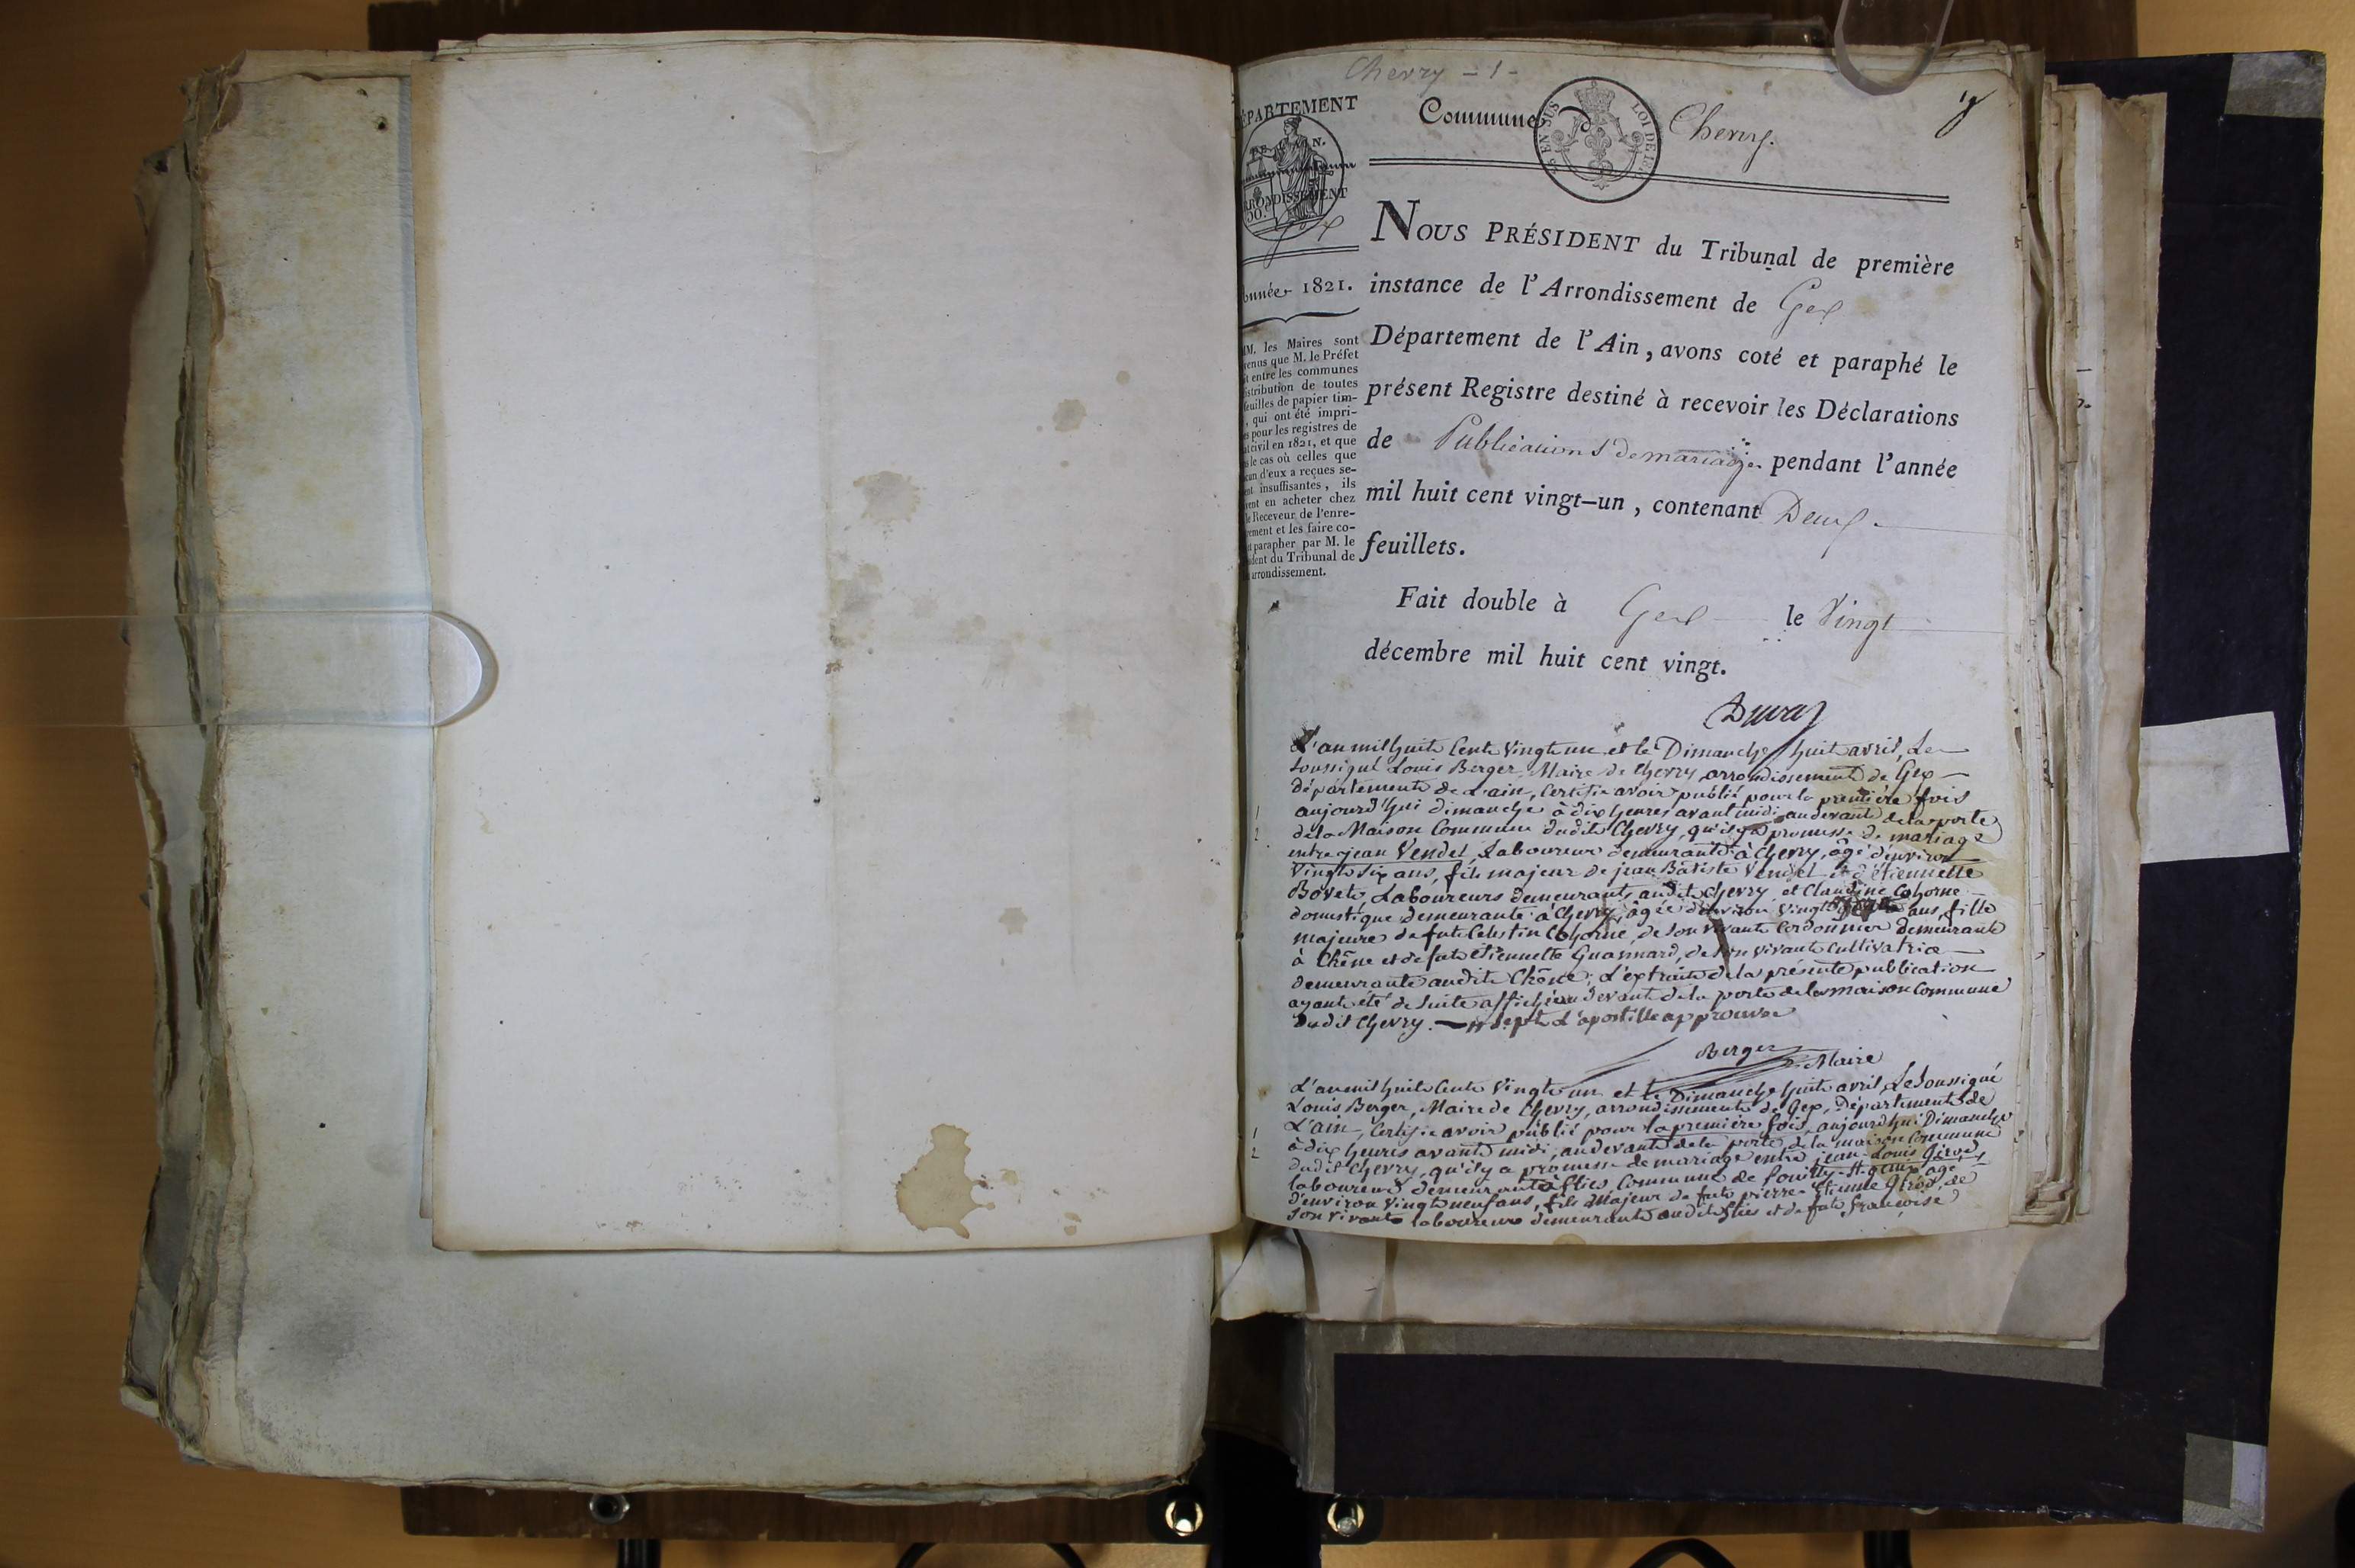 Chevry - 1 -
ÉPARTEMENT
DE L'AIN.
ARRONDISSEMENT
Gex
Année 1821.
MM. les Maires sont
venus que M. le Préfet
it entre les communes
istribution de toutes
feuilles de papier tim-
, qui ont été impri-
es pour les registres de
at civil en 1821, et que
s le cas où celles que
cun d'eux a reçues se-
ent insuffisantes, ils
vent en acheter chez
le Receveur de l'enre-
rement et les faire co-
et parapher par M. le
sident du Tribunal de
arrondissement.
Commune de Chevry.
EN SUS LOI DE
NOUS PRÉSIDENT du Tribunal de première
instance de l'Arrondissement de Gex
Département de l'Ain, avons coté et paraphé le
présent Registre destiné à recevoir les Déclarations
de Publications de mariage pendant l'année
mil huit cent vingt-un, contenant Deux
feuillets.
Fait double à Gex le Vingt
décembre mil huit cent vingt.
L'an mil huit Cent Vingt un et le Dimanche huit avril, Le
Soussigné Louis Berger, Maire de Chevry, arrondissement de Gex
département de L'ain, Certifie avoir publié pour la première fois
aujourd'hui dimanche à dix heures avant midi au devant de la porte
de la Maison Commune dudit Chevry, qu'il y a promesse de mariage
entre jean Vendel, Laboureur demeurant à Chevry, âgé d'environ
Vingt Six ans, fils majeur de jean Batiste Vendel et d'étiennette
Bovet, Laboureurs demeurant audit Chevry et Claudine Cohorne
domestique demeurante à Chevry, âgée d'environ vingt ans, fille
majeure de fut Celestin Cohorne, de Son vivant Cordonnier demeurant
à Chêne et de fut étiennette Guannard, de Son vivant Cultivatrice
demeurante audit Chêne; L'extrait de la présente publication
ayant été de Suite affiché au devant de la porte de la maison Commune
dudit Chevry. sept L'apostille approuvée
Berger
Maire
L'an mil huit Cent Vingt un et le Dimanche huit avril, Le Soussigné
Louis Berger, Maire de Chevry, arrondissement de Gex, Département de
L'ain, Certifie avoir publié pour la première fois, aujourd'hui Dimanche
à dix heures avant midi, au devant de la porte de la maison Commune
dudit Chevry, qu'il y a promesse de mariage entre jean-Louis Girod,
laboureur demeurant à flies, Commune de Pouilly-St genix âgé
d'environ Vingt neuf ans, fils Majeur de fut pierre-Etienne Girod, de
Son Vivant laboureur demeurant audit flies et de fut françoise